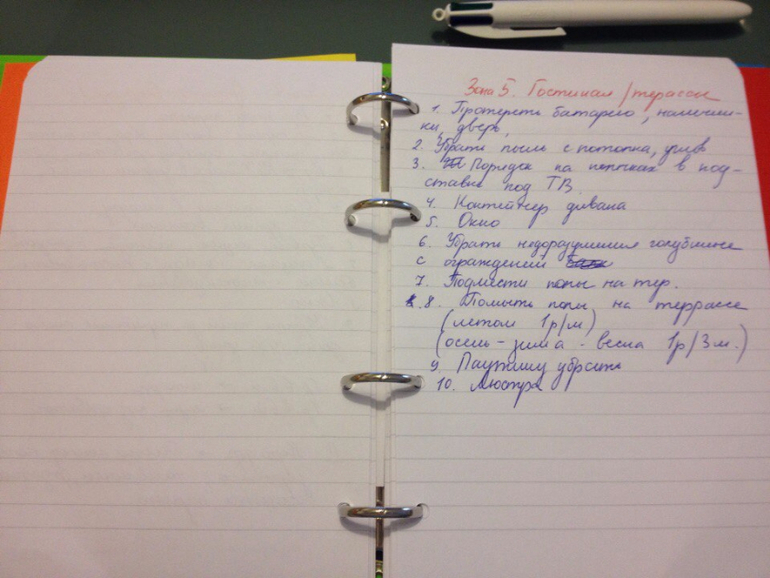 Зона 5. Гостиная/терасса
1. Протереть батарею, налични-
ки, дверь,
2. Убрать пыль с потолка, углов
3. Порядок на полочках в под-
ставке под ТВ.
4. Контейнер дивана
5. Окно
6. Убрать недоразумения голубиные
с ограждений
7. Подмести полы на тер.
8. Помыть полы на террассе
(летом 1р/м)
(осень-зима-весна 1р/3м.)
9. Паутину убрать
10. Люстра